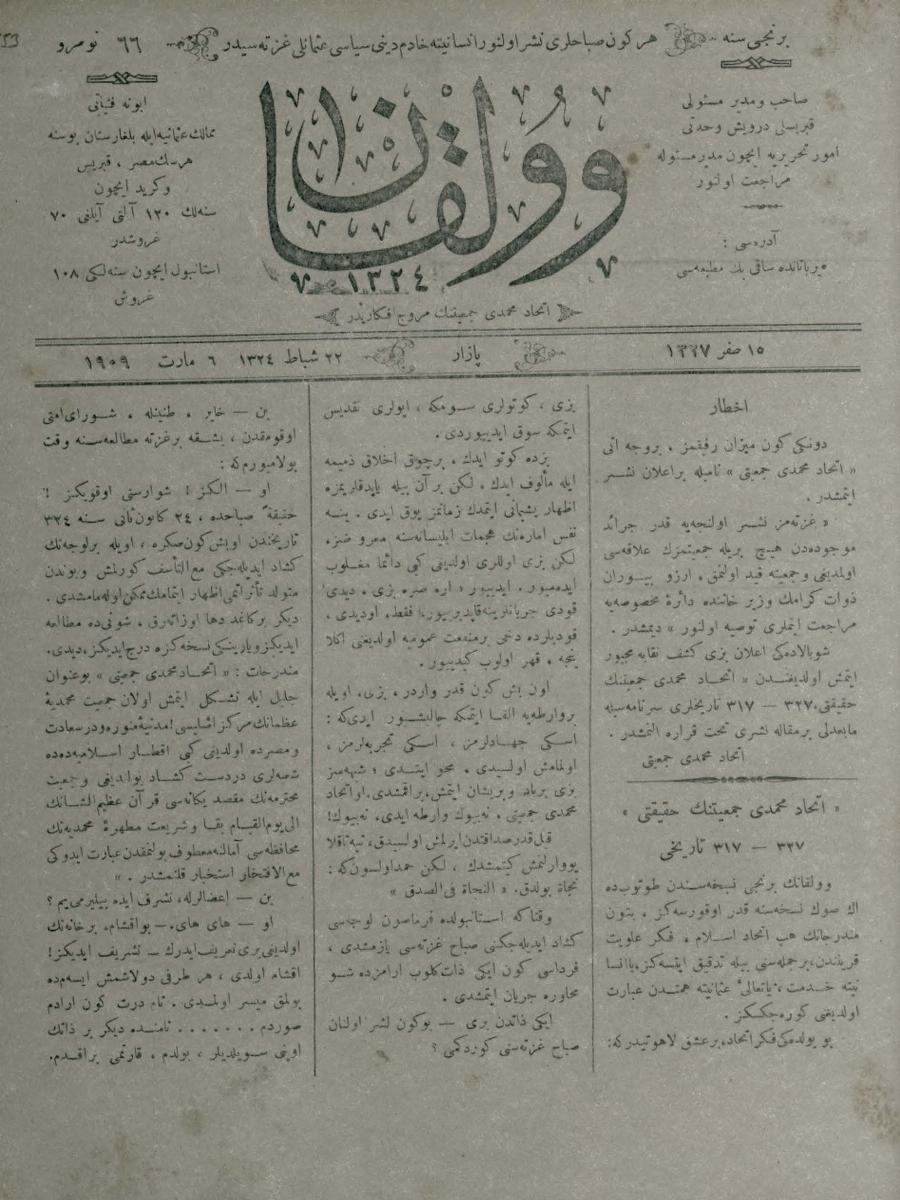 برنجی سنه
هر كون صباحلری نشر اولنور انسانیته خادم دینی سیاسی عثمانلی غزته سیدر
٦٦ نومرو
صاحب و مدیر مسئولی
قبریسلی درویش وحدتی
امور تحریریه ایچون مدیر مسئوله
مراجعت اولنور
آدرسی :
یرباتانده ساقی بك مطبعه‌سی
وولقان
١٣٢٤
اتحاد محمدی جمعیتنك مروج افكاریدر
ابونه فیئاتی
ممالك عثمانیه ایله بلغارستان بوسنه
هرسك مصر ، قبریس
و كرید ایچون
سنه‌لك ١٢٠ آلتی آیلغی ٧٠
غروشدر
استانبول ایچون سنه لكی ١٠٨
غروش
١٥ صفر ١٣٢٧
پازار
٢٢ شباط ١٣٢٤
٦ مارت ١٩٠٩
اخطار
دونكی كون میزان رفیقمز ، بروجه آتی
« اتحاد محمدی جمعیتی » نامیله براعلان نشر
ایتمشدر .
« غزته‌مز نشر اولنجه‌یه قدر جرائد
موجوده‌دن هیچ بریله جمعیتمزك علاقه‌سی
اولمدیغی و جمعیته قید اولنمق ، آرزو بیوران
ذوات كرامك وزیر خاننده دائرهٔ مخصوصه‌یه
مراجعت ایتملری توصیه اولنور » دیمشدر .
شو بالاده‌كی اعلان بزی كشف نقابه مجبور
ایتمش اولدیغندن « اتحاد محمدی جمعیتنك
حقیقتی، ٣٢٧ — ٣١٧ تاریخلری سرنامه‌سیله
مابعدلی برمقاله نشری تحت قراره آلنمشدر .
اتحاد محمدی جمعیتی
« اتحاد محمدی جمعیتنك حقیقتی »
٣٢٧ — ٣١٧ تاریخی
وولقانك برنجی نسخه‌سندن طوتوب‌ده
اك صوك نسخه‌سنه قدر اوقورسه‌كز ، بتون
مندرجاتك هب اتحاد اسلام ، فكر علویت
قریندن، برجمله‌سنی بیله تدقیق ایتسه‌كز، یا انسا
نیته خدمت، یا تعالیٔ عثمانیته همتدن عبارت
اولدیغنی كوره جكسكز .
بو یولده‌كی فكر اتحاد، بر عشق لاهوتیدركه:
بزی ، كوتولری سومكه ، ایولری تقدیس
ایتمكه سوق ایدییوردی.
بزده كوتو ایدك ، برچوق اخلاق ذمیمه
ایله مألوف ایدك . لكن بر آن بیله یاپدقلریمزه
اظهار پشیمانی ایتمدك زمانمز یوق ایدی . ینه
نفس اماره‌نك هجمات ابلیسانه‌سنه معروضز.
لكن بزی اوللری اولدیغی كبی دائما مغلوب
ایده‌میور . ایدییور ؛ اره صره بزی ، دیدی
قودی جریانلرینه قاپدیرییور، فقط، او دیدی ،
قودیلرده دخی بر منفعت عمومیه اولدیغنی آكلا
ینجه ، قهر اولوب كیدییور.
اون بش كون قدر واردر ، بزی، اویله
بر وارطه‌یه القا ایتمكه چالیشیور ایدی‌كه :
اسكی جهادلرمز ، اسكی تجربه‌لرمز ،
اولمامش اولسیدی . محو ایتدی ؛ شبهه‌سز
بزی برباد و پریشان ایتمش، براقمشدی. او اتحاد
محمدی جمعیتی . نه‌بیوك وارطه ایدی، نه‌بیوك!
قیل قدر صداقتدن ایرلمش اولسیدق، تپه تاقلا
یووارلنمش كیتمشدك ، لكن حمداولسون‌كه :
نجاة بولدق. « النجاة فی الصدق »
وقتاكه استانبولده فرماصون لوجه‌سی
كشاد ایدیله‌جكنی صباح غزته‌سی یازمشدی ،
فرداسی كون ایكی ذات كلوب آرامزده شو
محاوره جریان ایتمشدی .
ایكی ذاتدن بری — بوكون نشر اولنان
صباح غزته‌سنی كوردكمی ؟
بن — خایر ، طنینله ، شورای امتی
اوقومقدن ، بشقه بر غزته مطالعه‌سنه وقت
بولامیورم‌كه :
او — آلكز ! شوراسنی اوقویكز !
حقیقةً صباحده ، ٢٤ كانون ثانی سنه ٣٢٤
تاریخندن اوبش كون صكره ، اویله برلوجه‌نك
كشاد ایدیله‌جكی مع التأسف كورلمش و بوندن
متولد تأثراتمی اظهار ایتمامك ممكن اوله‌مامشدی .
دیگر بر كاغد دها اوزاته‌رق ، شونی‌ده مطالعه
ایدیكز و یارینكی نسخه‌كزه درج ایدیكز، دیدی.
مندرجات : « اتحاد محمدی جمعیتی » بو عنوان
جلیل ایله تشكل ایتمش اولان جمعیت محمدیهٔ
عظمانك مركز اشلیسی! مدنیهٔ منوره و در سعادت
و مصرده اولدیغی كبی اقطار اسلامیه‌ده‌ده
شعبه‌لری دردست كشاد بولندیغی و جمعیت
محترمه‌نك مقصد یكانه‌سی قرآن عظیم الشانك
الی یوم القیام بقا و شریعت مطهرهٔ محمدیه‌نك
محافظه‌سی آمالنه معطوف بولنمقدن عبارت ایدوكی
مع الافتخار استخبار قلنمشدر . »
بن — اعضالرله، تشرف ایده بیلیرمی‌یم ؟
او — های های. — بو اقشام، بر خانه‌نك
اولدیغی یری تعریف ایدرك — تشریف ایدیكز!
اقشام اولدی ، هر طرفی دولاشمش ایسه‌مده
بولمق میسر اولمدی . تام درت كون آرادم
صوردم . . . . . . . نامنده دیكر بر ذاتك
اوینی سویلدیلر ، بولدم ، قارتمی براقدم.